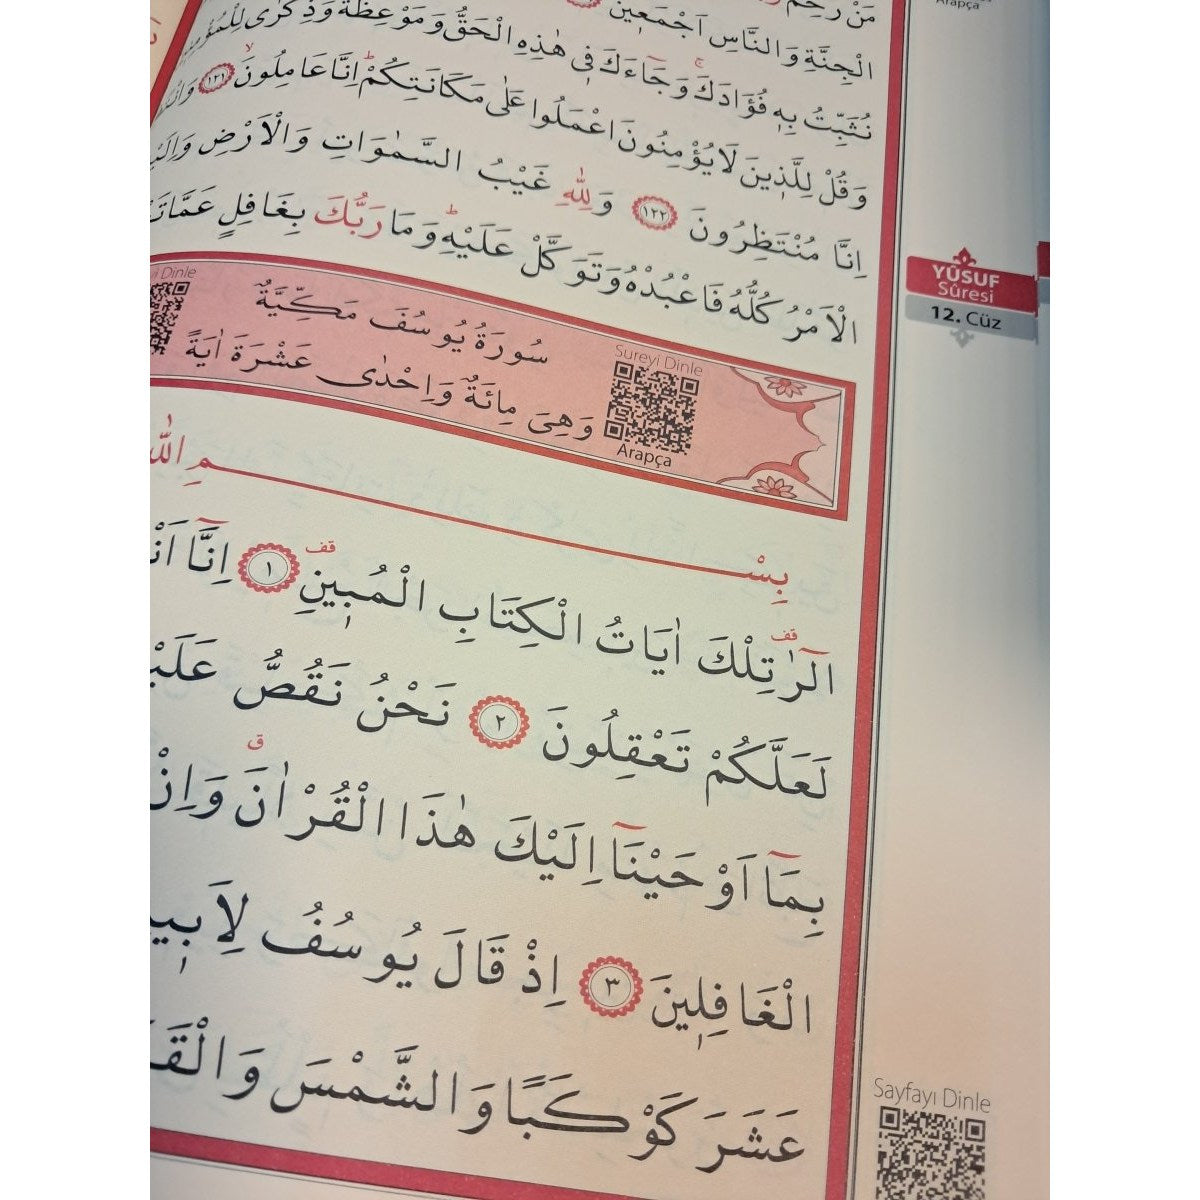 مَنْ رَحِمَ
Arapça
الْجِنَّةِ وَالنَّاسِ اَجْمَعٖينَ
نُثَبِّتُ بِهٖ فُؤَادَكَ وَجَٓاءَكَ فٖي هٰذِهِ الْحَقُّ وَمَوْعِظَةٌ وَذِكْرٰى لِلْمُؤْمِ
وَقُلْ لِلَّذٖينَ لَا يُؤْمِنُونَ اعْمَلُوا عَلٰى مَكَانَتِكُمْ اِنَّا عَامِلُونَ ﴿١٢١﴾
اِنَّا مُنْتَظِرُونَ ﴿١٢٢﴾ وَلِلّٰهِ غَيْبُ السَّمٰوَاتِ وَالْاَرْضِ وَاِلَيْ
الْاَمْرُ كُلُّهُ فَاعْبُدْهُ وَتَوَكَّلْ عَلَيْهِ وَمَا رَبُّكَ بِغَافِلٍ عَمَّا
YÛSUF
Sûresi
12. Cüz
سُورَةُ يُوسُفَ مَكِّيَّةٌ
وَهِيَ مِائَةٌ وَاِحْدٰى عَشْرَةَ اٰيَةً
Sureyi Dinle
Arapça
i Dinle
بِسْمِ اللّٰ
الٓرٰ تِلْكَ اٰيَاتُ الْكِتَابِ الْمُبٖينِ ﴿١﴾ اِنَّٓا اَنْ
لَعَلَّكُمْ تَعْقِلُونَ ﴿٢﴾ نَحْنُ نَقُصُّ عَلَيْ
بِمَٓا اَوْحَيْنَٓا اِلَيْكَ هٰذَا الْقُرْاٰنَ وَاِنْ
الْغَافِلٖينَ ﴿٣﴾ اِذْ قَالَ يُوسُفُ لِاَبٖي
عَشَرَ كَوْكَبًا وَالشَّمْسَ وَالْقَ
Sayfayı Dinle